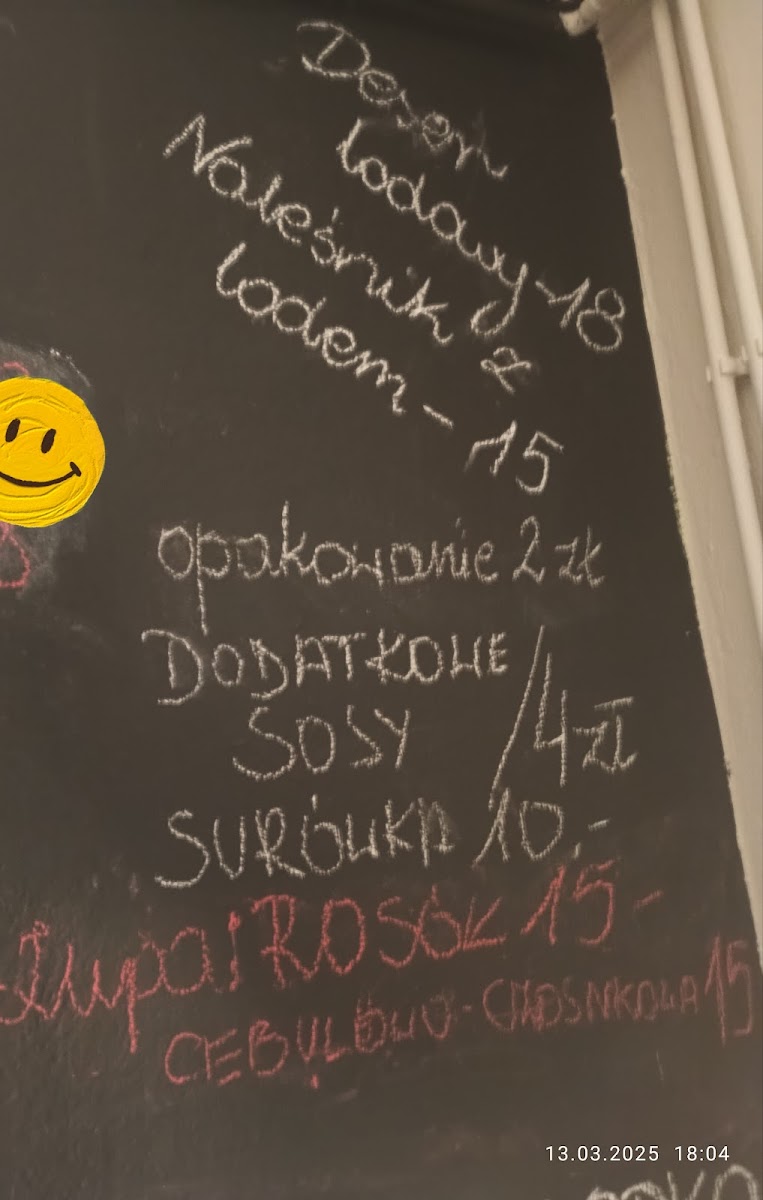 Deser
lodowy - 18
Naleśnik z
lodem - 15
opakowanie 2 zł
DODATKOWE
SOSY / 4 zł
SURÓWKA 10,-
Zupa ROSÓŁ 15-
CEBULOWO-CZOSNKOWA 15
13.03.2025 18:04